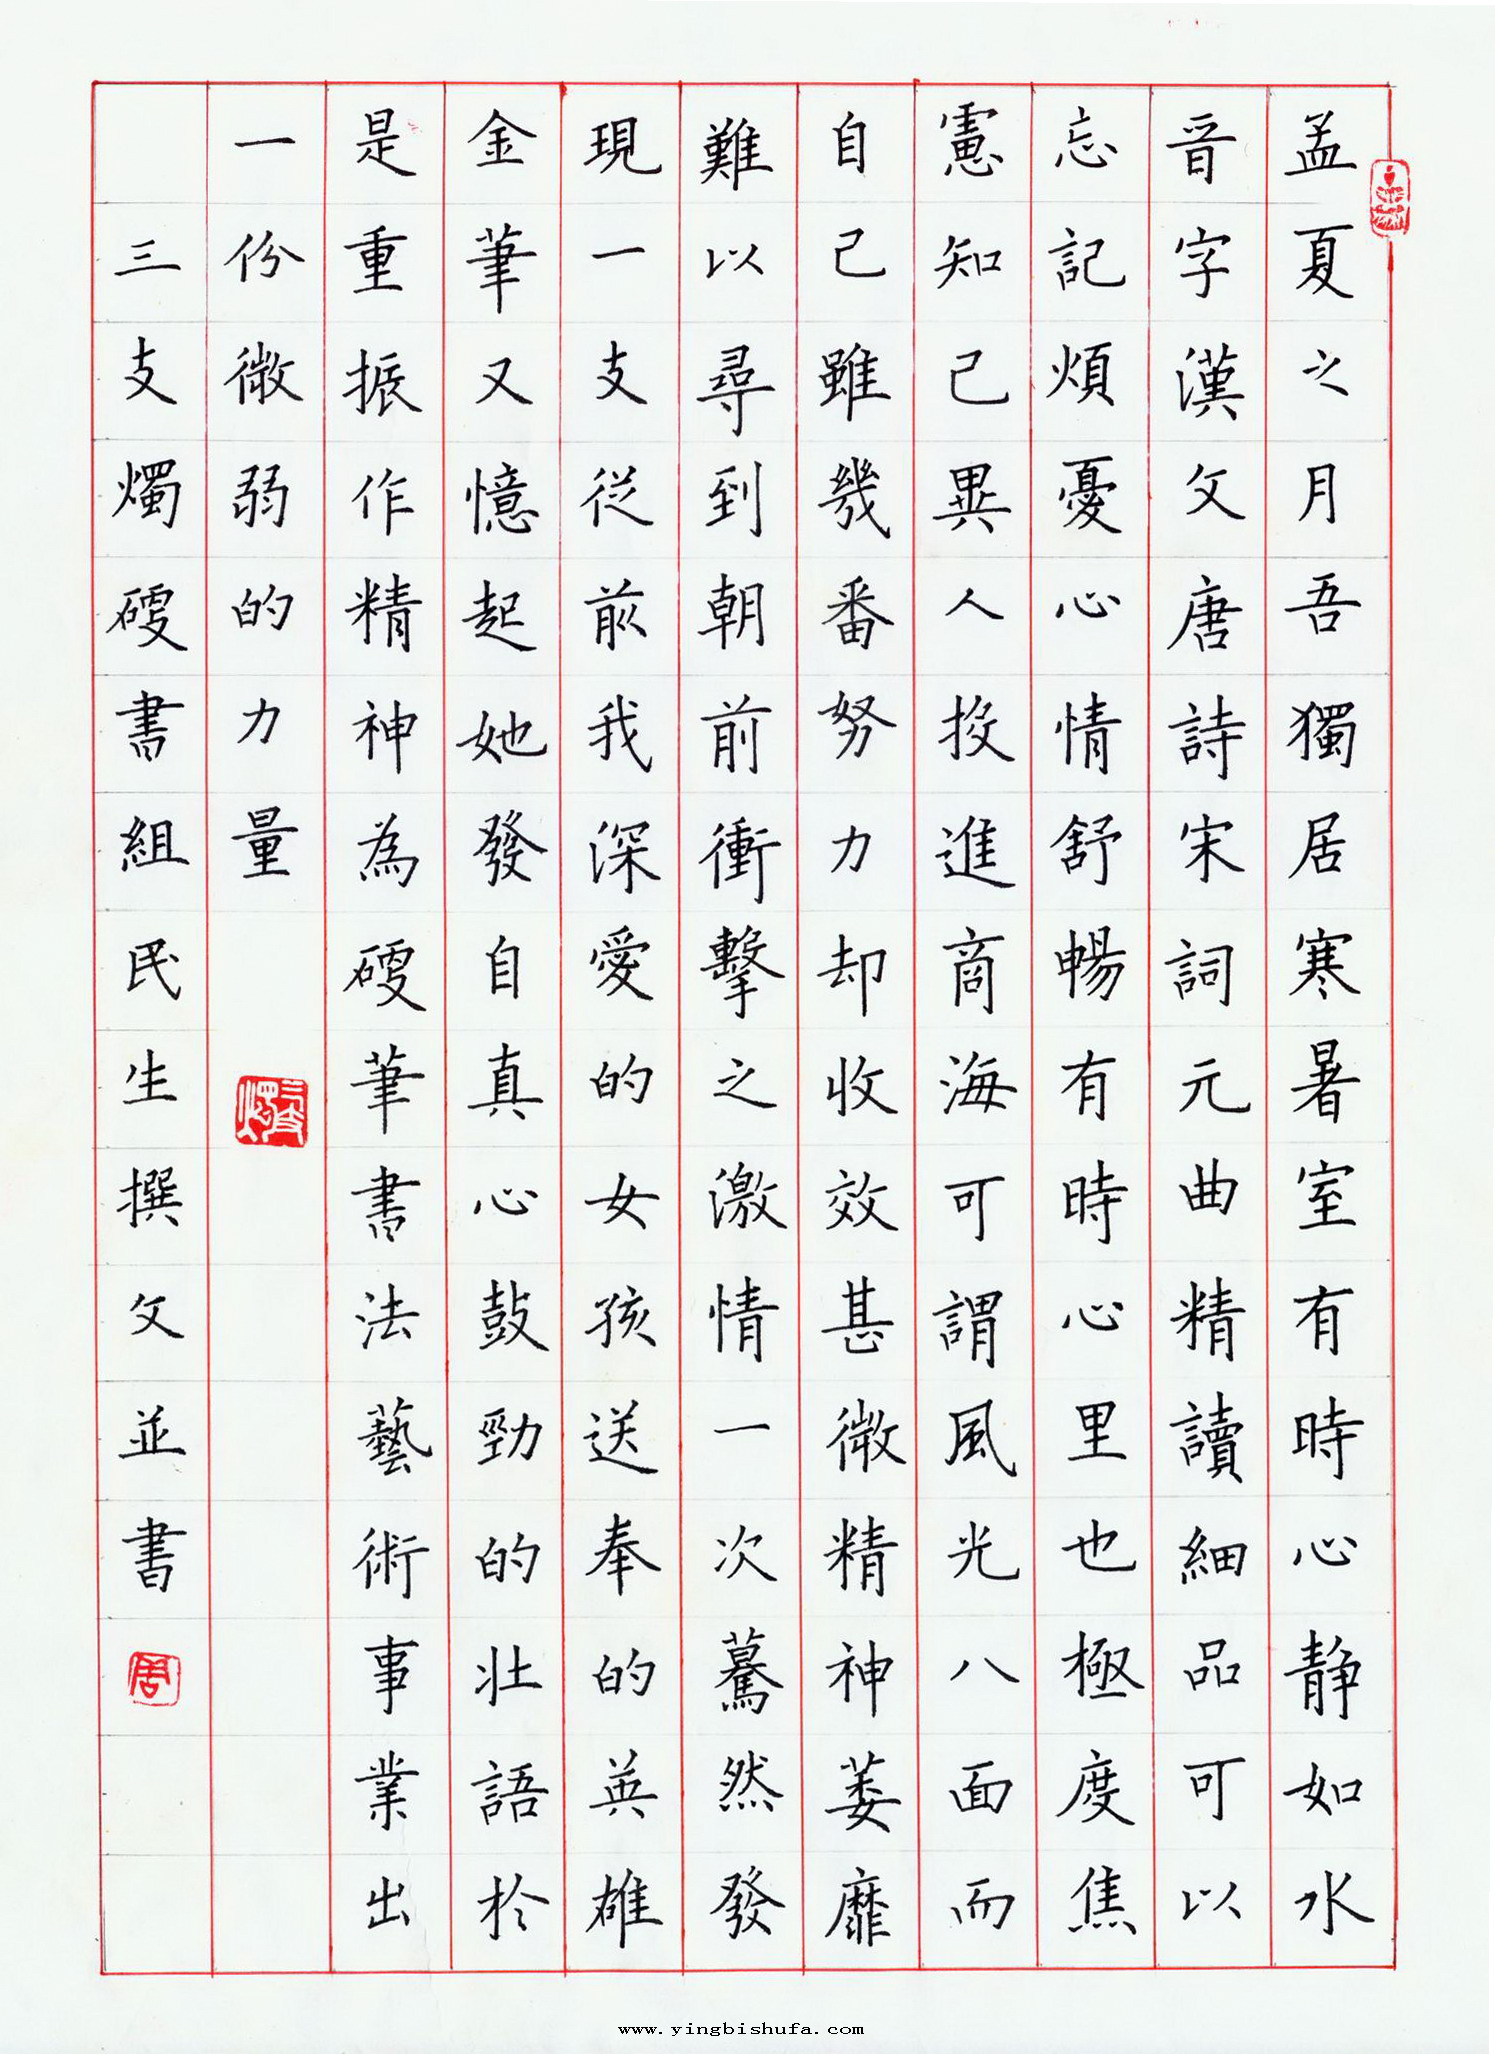 孟夏之月吾獨居寒暑室有時心静如水
晉字漢文唐詩宋詞元曲精讀細品可以
忘記煩憂心情舒暢有時心里也極度焦
慮知己異人投進商海可謂風光八面而
自己雖幾番努力却收效甚微精神萎靡
難以尋到朝前衝擊之激情一次驀然發
現一支從前我深愛的女孩送奉的英雄
金筆又憶起她發自真心鼓勁的壮語於
是重振作精神為硬筆書法藝術事業出
一份微弱的力量
三支燭硬書組民生撰文並書
www.yingbishufa.com